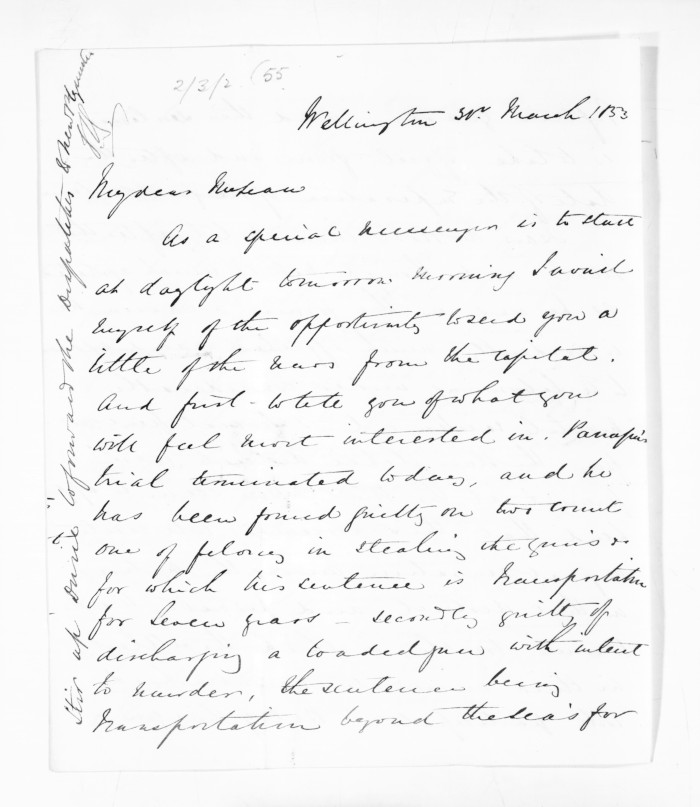 2/3/2 (55
Wellington 30th March 1853
My dear McLean
As a special messenger is to start
at daylight tomorrow morning I avail
myself of the opportunity to send you a
little of the news from the Capital.
And first - to tell you of what you
will feel most interested in. Panapa's
trial terminated today, and he
has been found guilty on two count
one of felony in stealing the guns &c
for which his sentence is Transportation
for Seven years - secondly guilty of
discharging a loaded gun with intent
to murder, the sentence being
Transportation beyond the sea's for
Stir up to forward the Despatches to New Plymouth